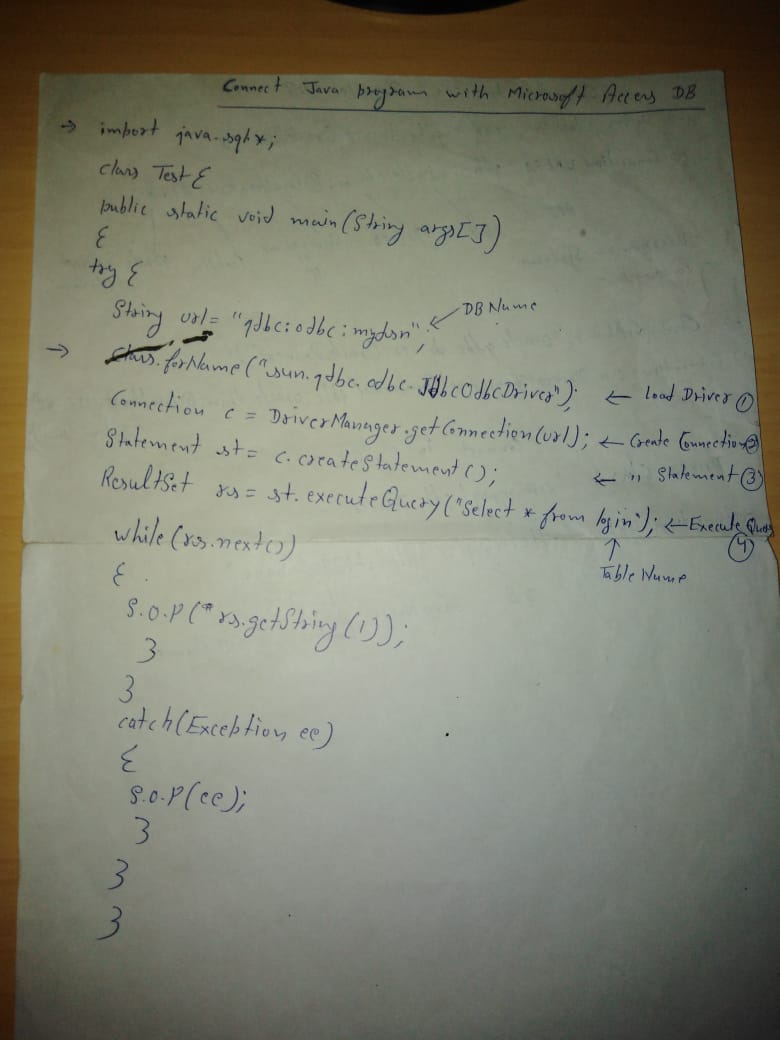 Connect Java program with Microsoft Access DB
→ import java.sql.*;
class Test {
public static void main(String args[])
{
try {
String url = "jdbc:odbc:mydsn"; ← DB Name
→ Class.forName("sun.jdbc.odbc.JdbcOdbcDriver"); ← Load Driver ①
Connection c = DriverManager.getConnection(url); ← Create Connection ②
Statement st = c.createStatement(); ← " Statement ③
ResultSet rs = st.executeQuery("Select * from login"); ← Execute Query ④
↑ Table Name
while(rs.next())
{
S.O.P(rs.getString(1));
}
}
catch(Exception ee)
{
S.O.P(ee);
}
}
}